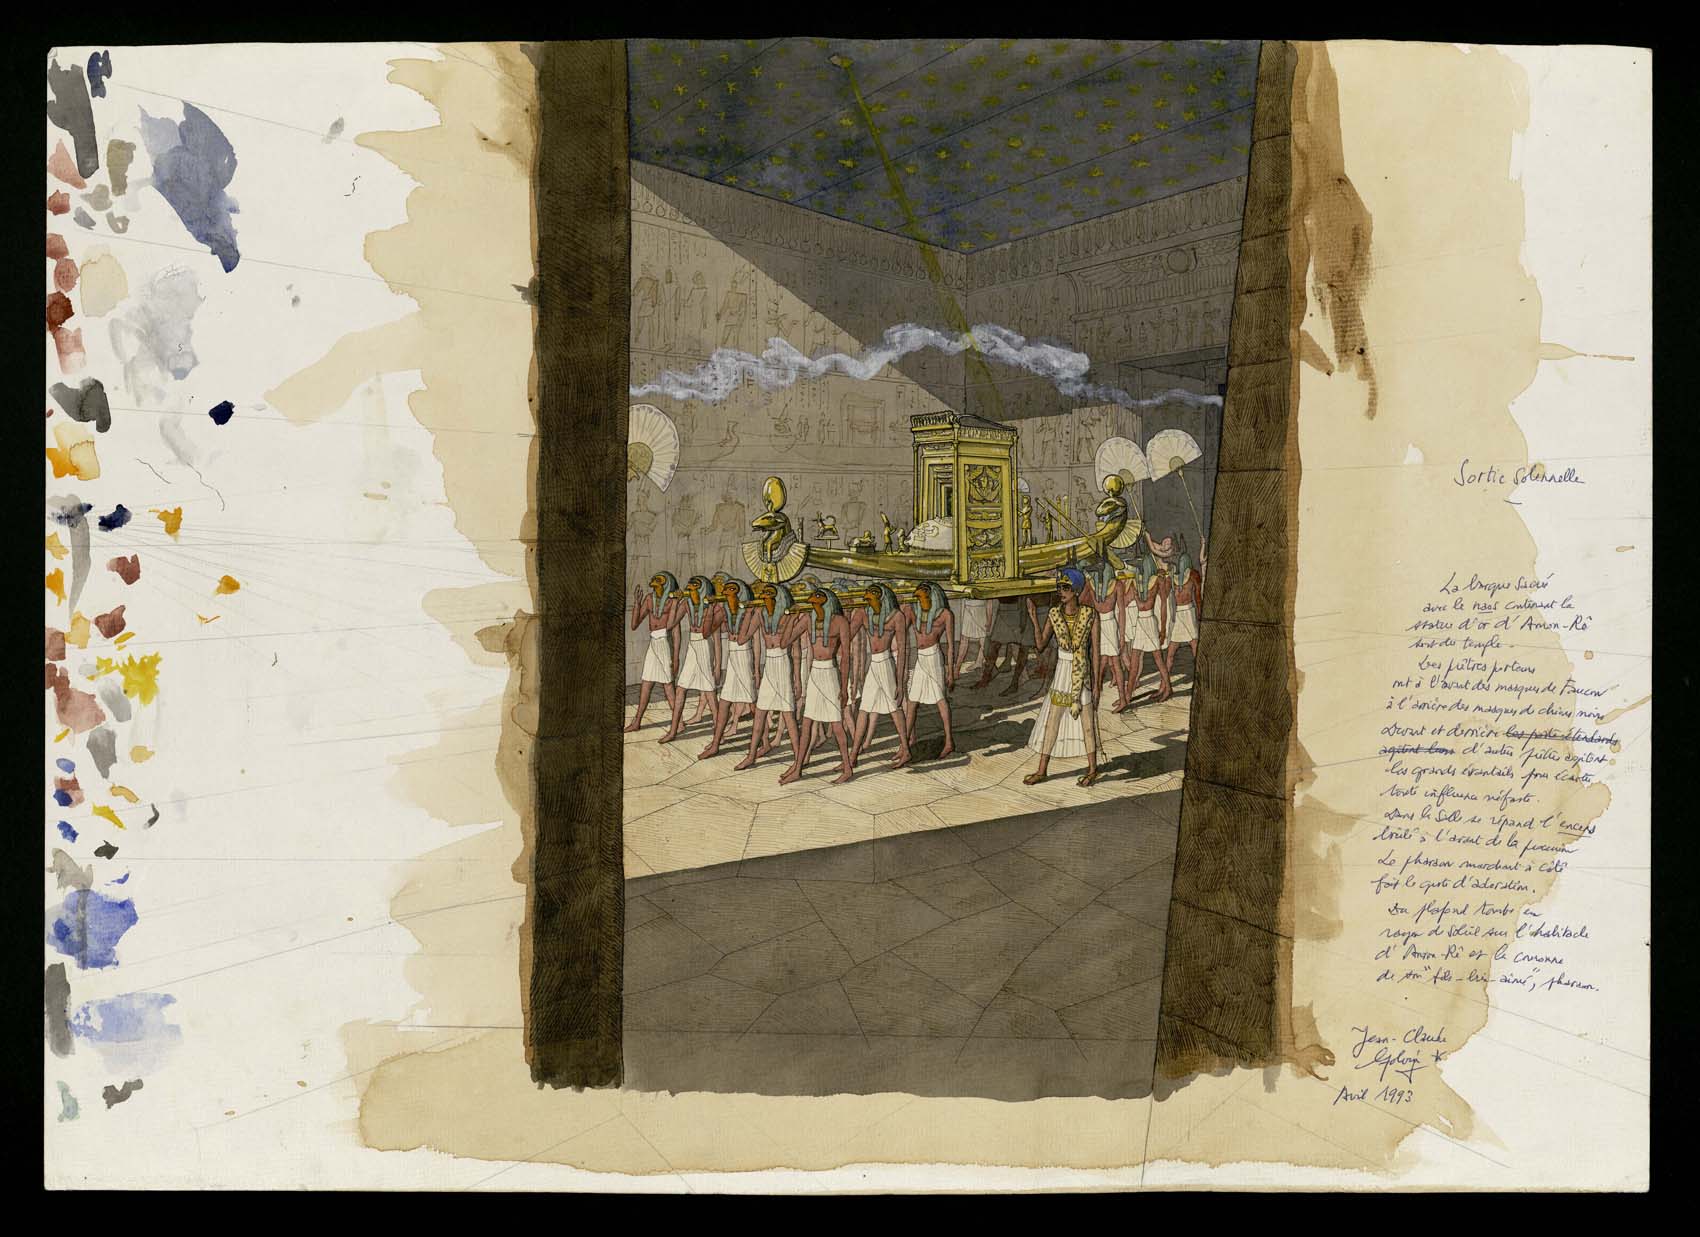 Sortie Solennelle
La barque sacrée
avec le naos contenant la
statue d'or d'Amon-Rê
sort du temple.
Les prêtres porteurs
ont à l'avant des masques de Faucon
à l'arrière des masques de chiens noirs
Devant et derrière les porte-étendards
agitent leurs d'autres prêtres agitent
les grands éventails pour écarter
toute influence néfaste.
Dans la salle se répand l'encens
brûlé à l'avant de la procession
Le pharaon marchant à côté
fait le geste d'adoration.
Du plafond tombe un
rayon de soleil sur l'habitacle
d'Amon-Rê et la couronne
de son "fils-bien-aimé", pharaon.
Jean-Claude
Golvin
Avril 1993